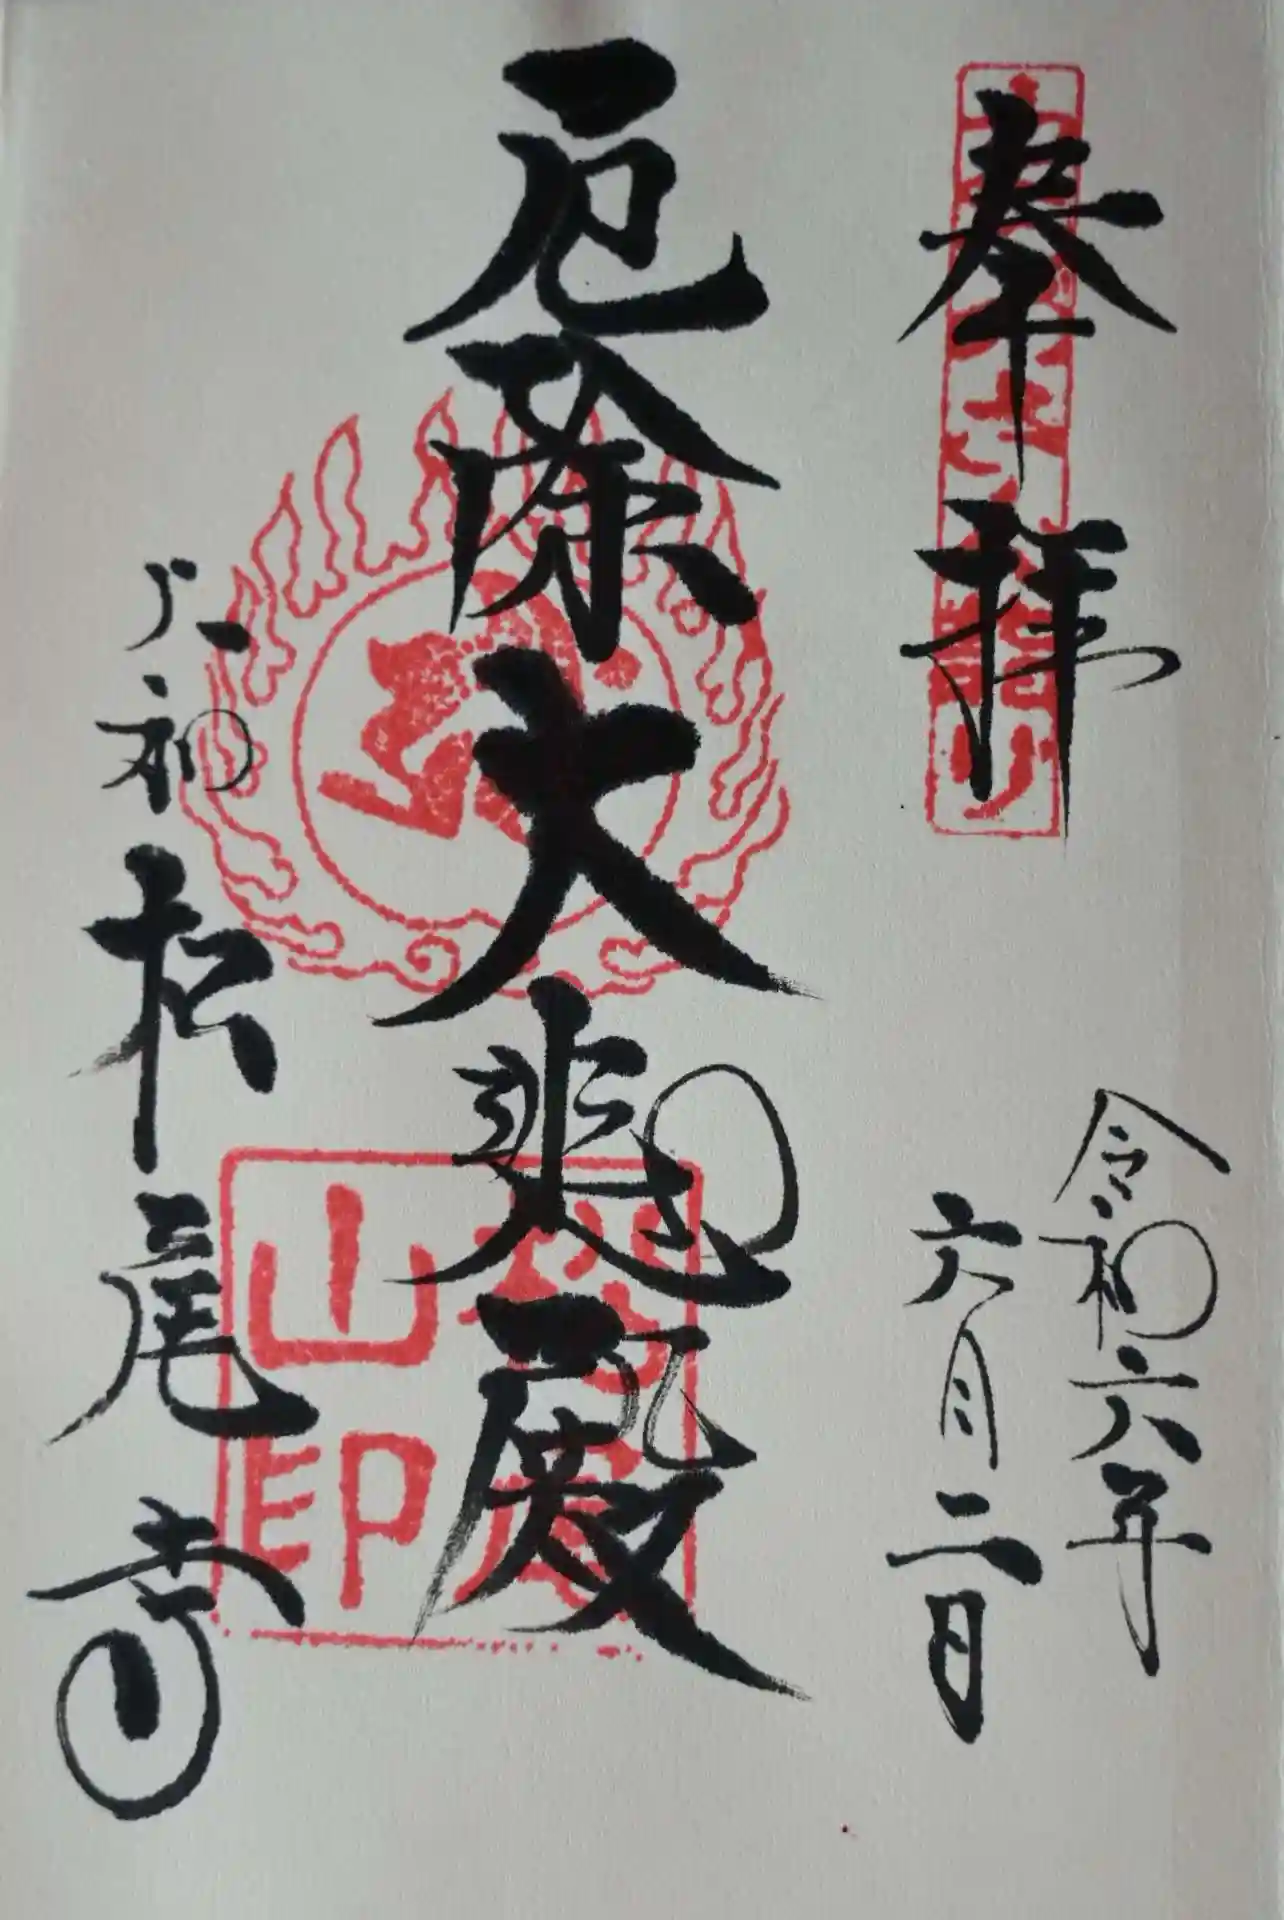 奉拝
令和六年
六月二日
厄除大悲殿
大和松尾寺
松尾山印